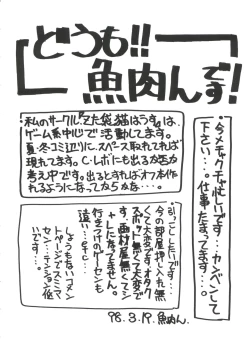 どうも!!
魚肉んです!
私のサークル「ずた袋猫はうす」は、
ゲーム系中心で活動してます。
夏・冬コミ辺りに、スペース取れてれば
現れてます。C・レボにも出るか否か
考え中です。出るとすればオフ本作
れるようになってからかな…。
今メチャクチャ忙しいです…カンベンして
下さい…。仕事たまってます…。
引っこししたいです。
今の部屋押入れ無
くて大変です。オタク
スポット無くて大変で
す。西村屋無くてシ
+したなってません。
行きつけのゲーセンも
遠い…etc…
しょうもないコメン
トページでスミマ
セン…テンション低
いです…。
98.3.19. 魚肉ん.